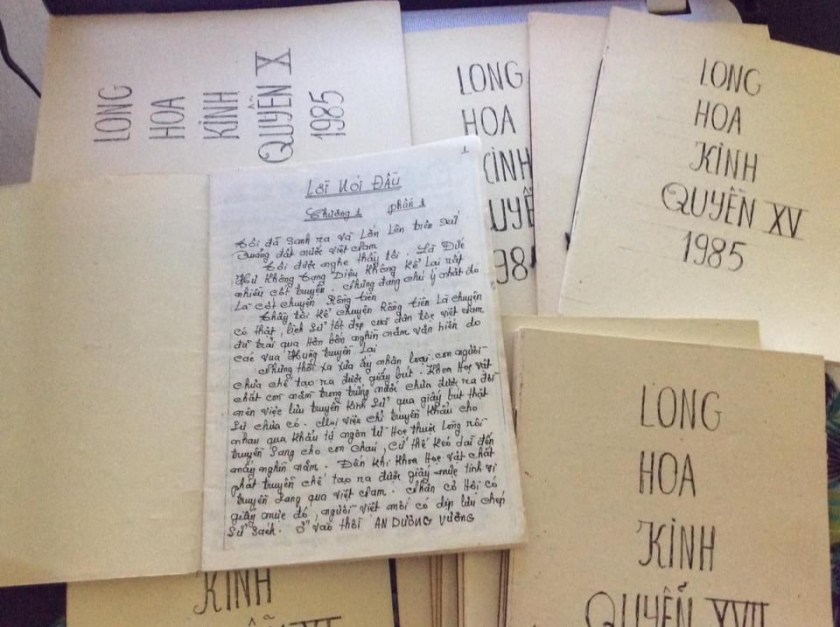 LONG
HOA
KINH
QUYỂN X
1985
LONG
HOA
KINH
QUYỂ
198
LONG
HOA
KINH
QUYỂN XV
1985
1
LỜI NÓI ĐẦU
Chương 1 phần 1
Tôi đã sanh ra và lớn lên trên xứ
ruộng đất nước việt nam
Tôi được nghe thầy tôi. Là Đức
Như Không Tạng Diệu Không kể lại rất
nhiều cốt truyện. Nhưng đáng chú ý nhất do
Là cốt chuyện Rồng tiên
Thầy tôi kể chuyện Rồng tiên Là chuyện
có thật, lịch sử tốt đẹp của dân tộc việt nam
đã trải qua Hơn bốn nghìn năm văn hiến do
các vua Hùng truyền Lại
Những thời xa xưa ấy nhân loại con người
chưa chế tạo ra được giấy bút. Khoa Học vật
chất con nằm trong trứng nước chưa được ra đời
nên việc lưu truyền kinh sử qua giấy bút thật
sự chưa có. Mọi việc chỉ truyền khẩu cho
nhau qua khẩu tự ngôn từ Học thuộc Lòng rồi
truyền sang cho con cháu, cứ thế kéo dài đến
mấy nghìn năm. Đến khi khoa Học vật chất
phát truyền chế tạo ra được giấy mực tính vi
truyền sang qua việt nam. nhân cơ Hội có
giấy mực đó, người việt mới có dịp lưu chép
Sử sách. Ở vào thời AN DƯƠNG VƯƠNG
LONG
HOA
KINH
QUYỂN XVII
KINH